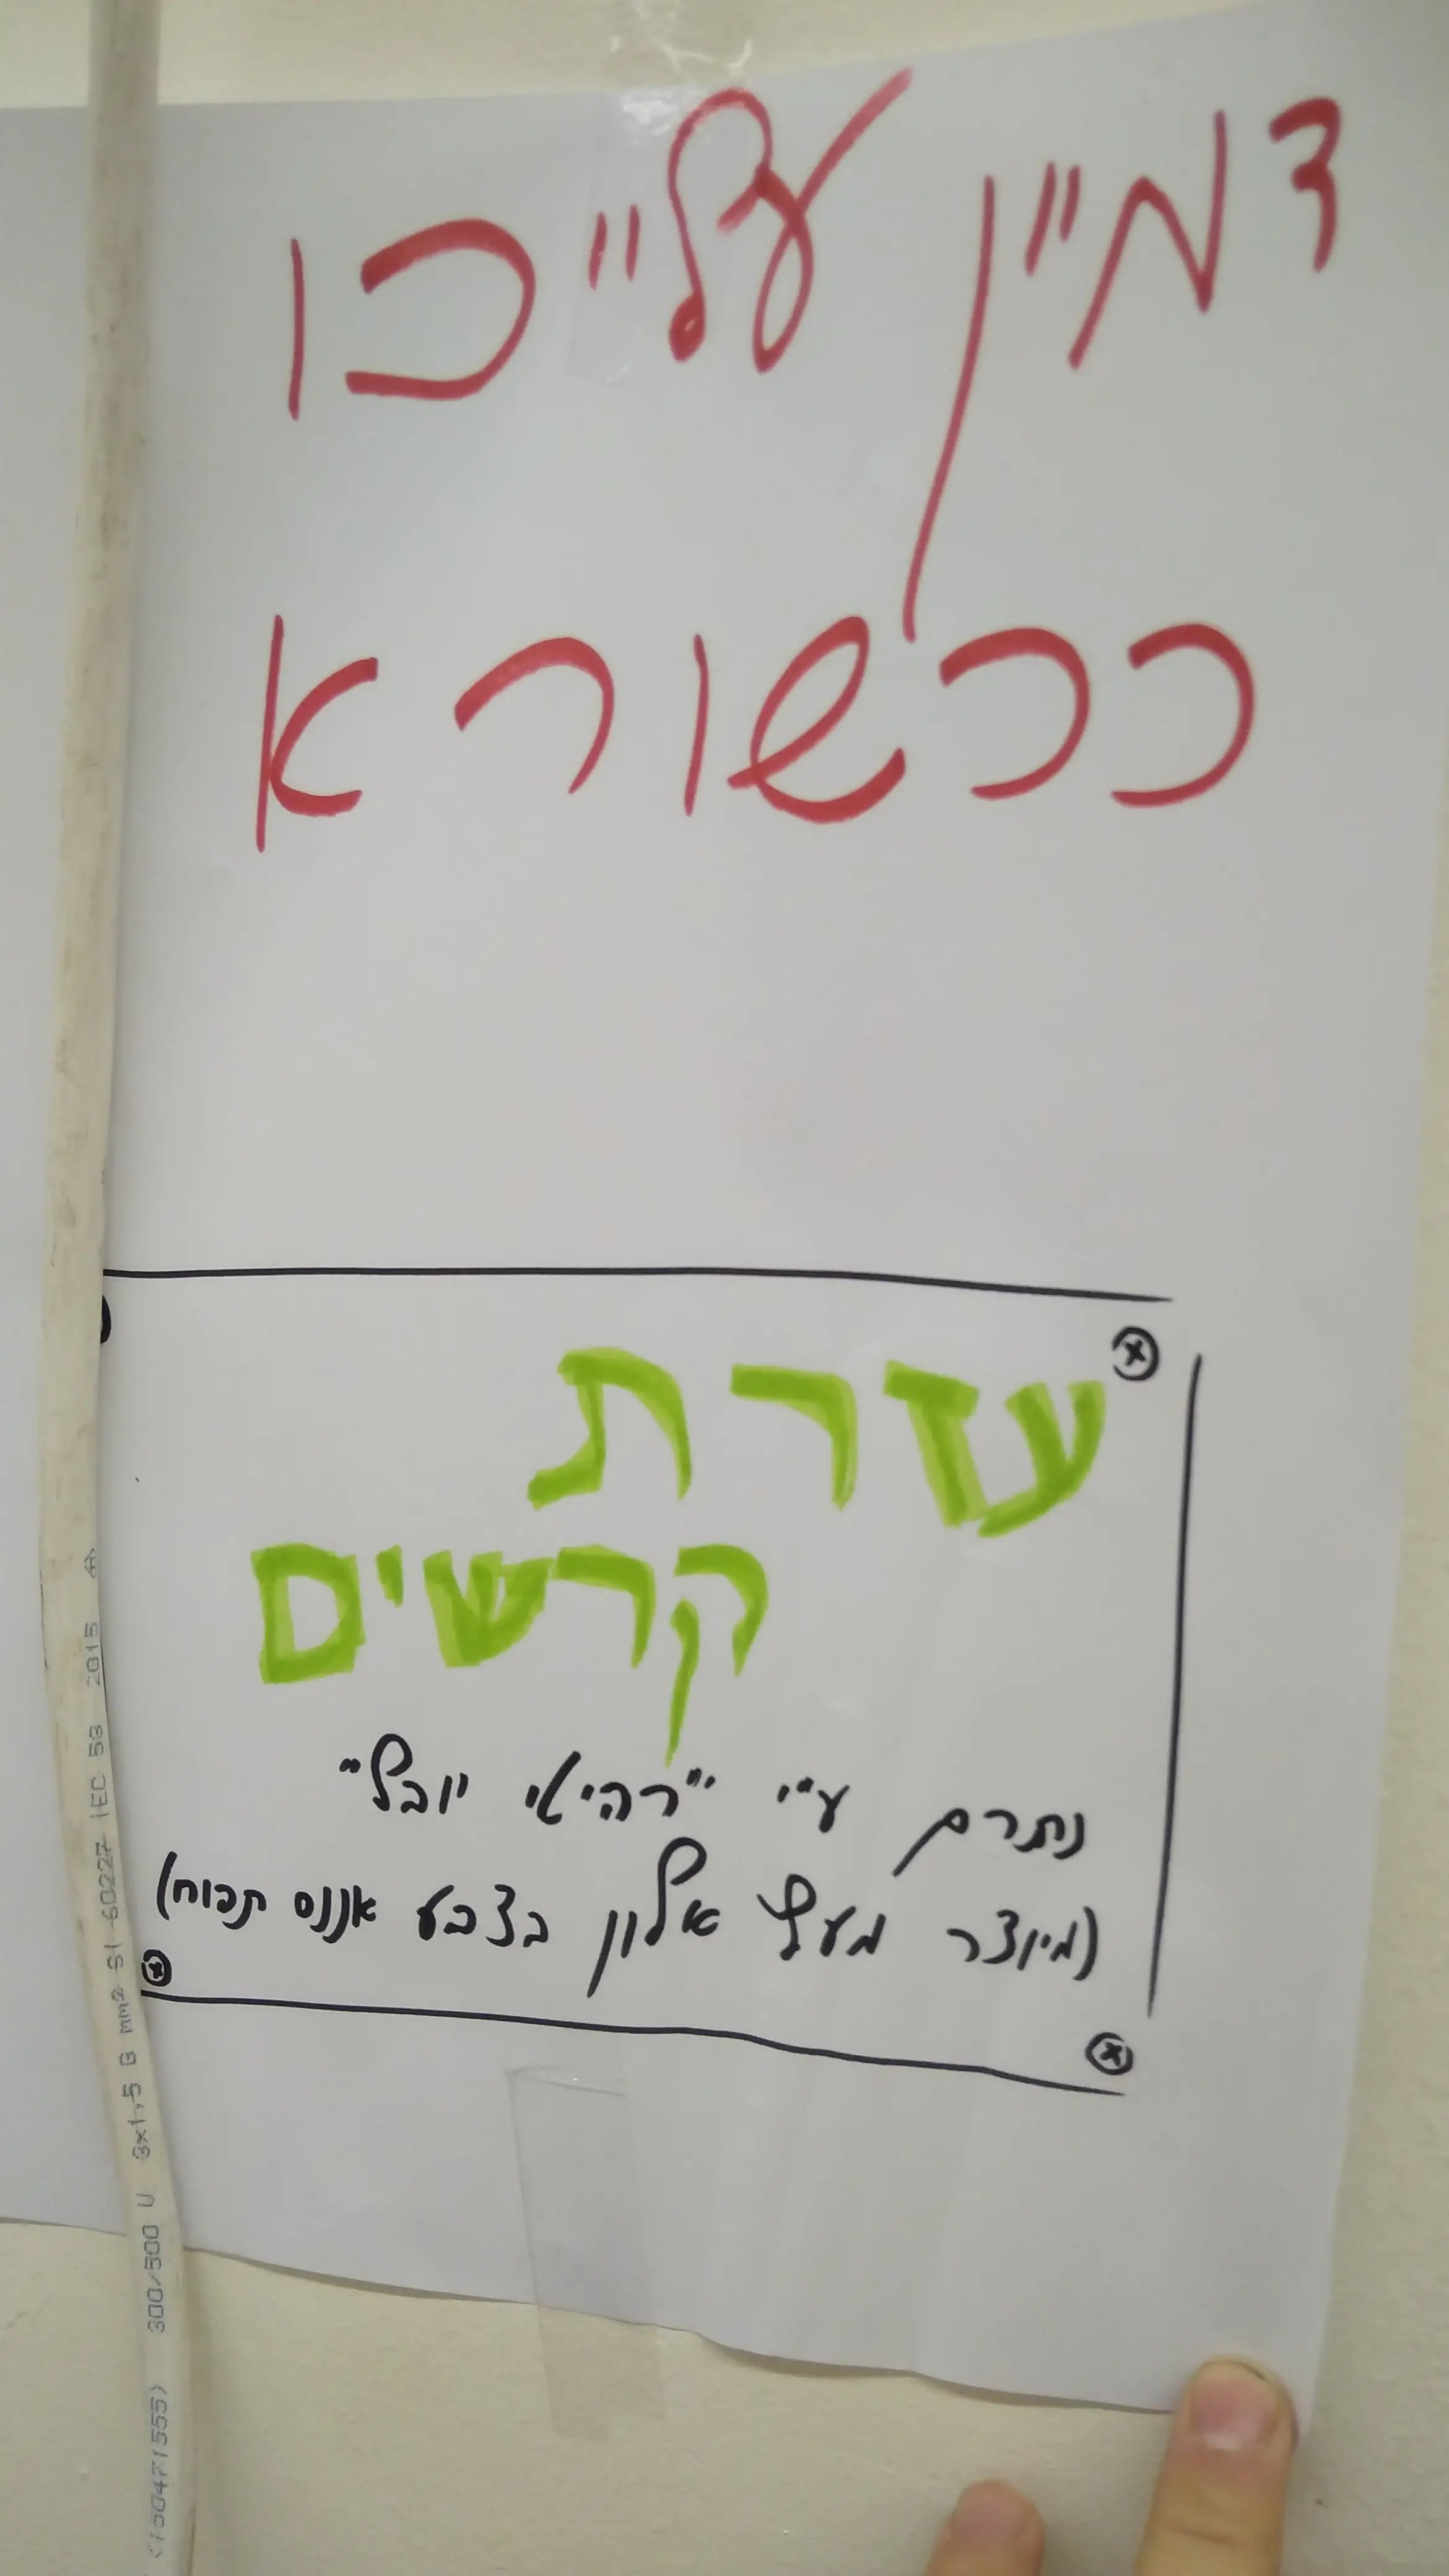 דמיין עלייכו
ככשורא
עזרת
קרשים
נתרם ע"י "רהיטי יובל"
(מיוצר מעץ אלון בצבע אננס תפוח)
<150471555> 300/500 V 3x1,5 B mm2 SI-60227 IEC 53 2015